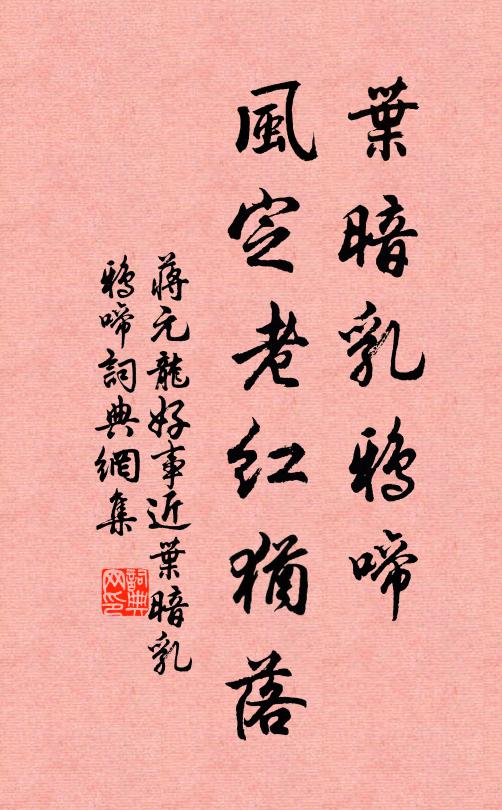 葉暗乳鴉啼
風定老紅猶落
蔣元龍好事近葉暗乳
鴉啼詞典網集
詞典
网印